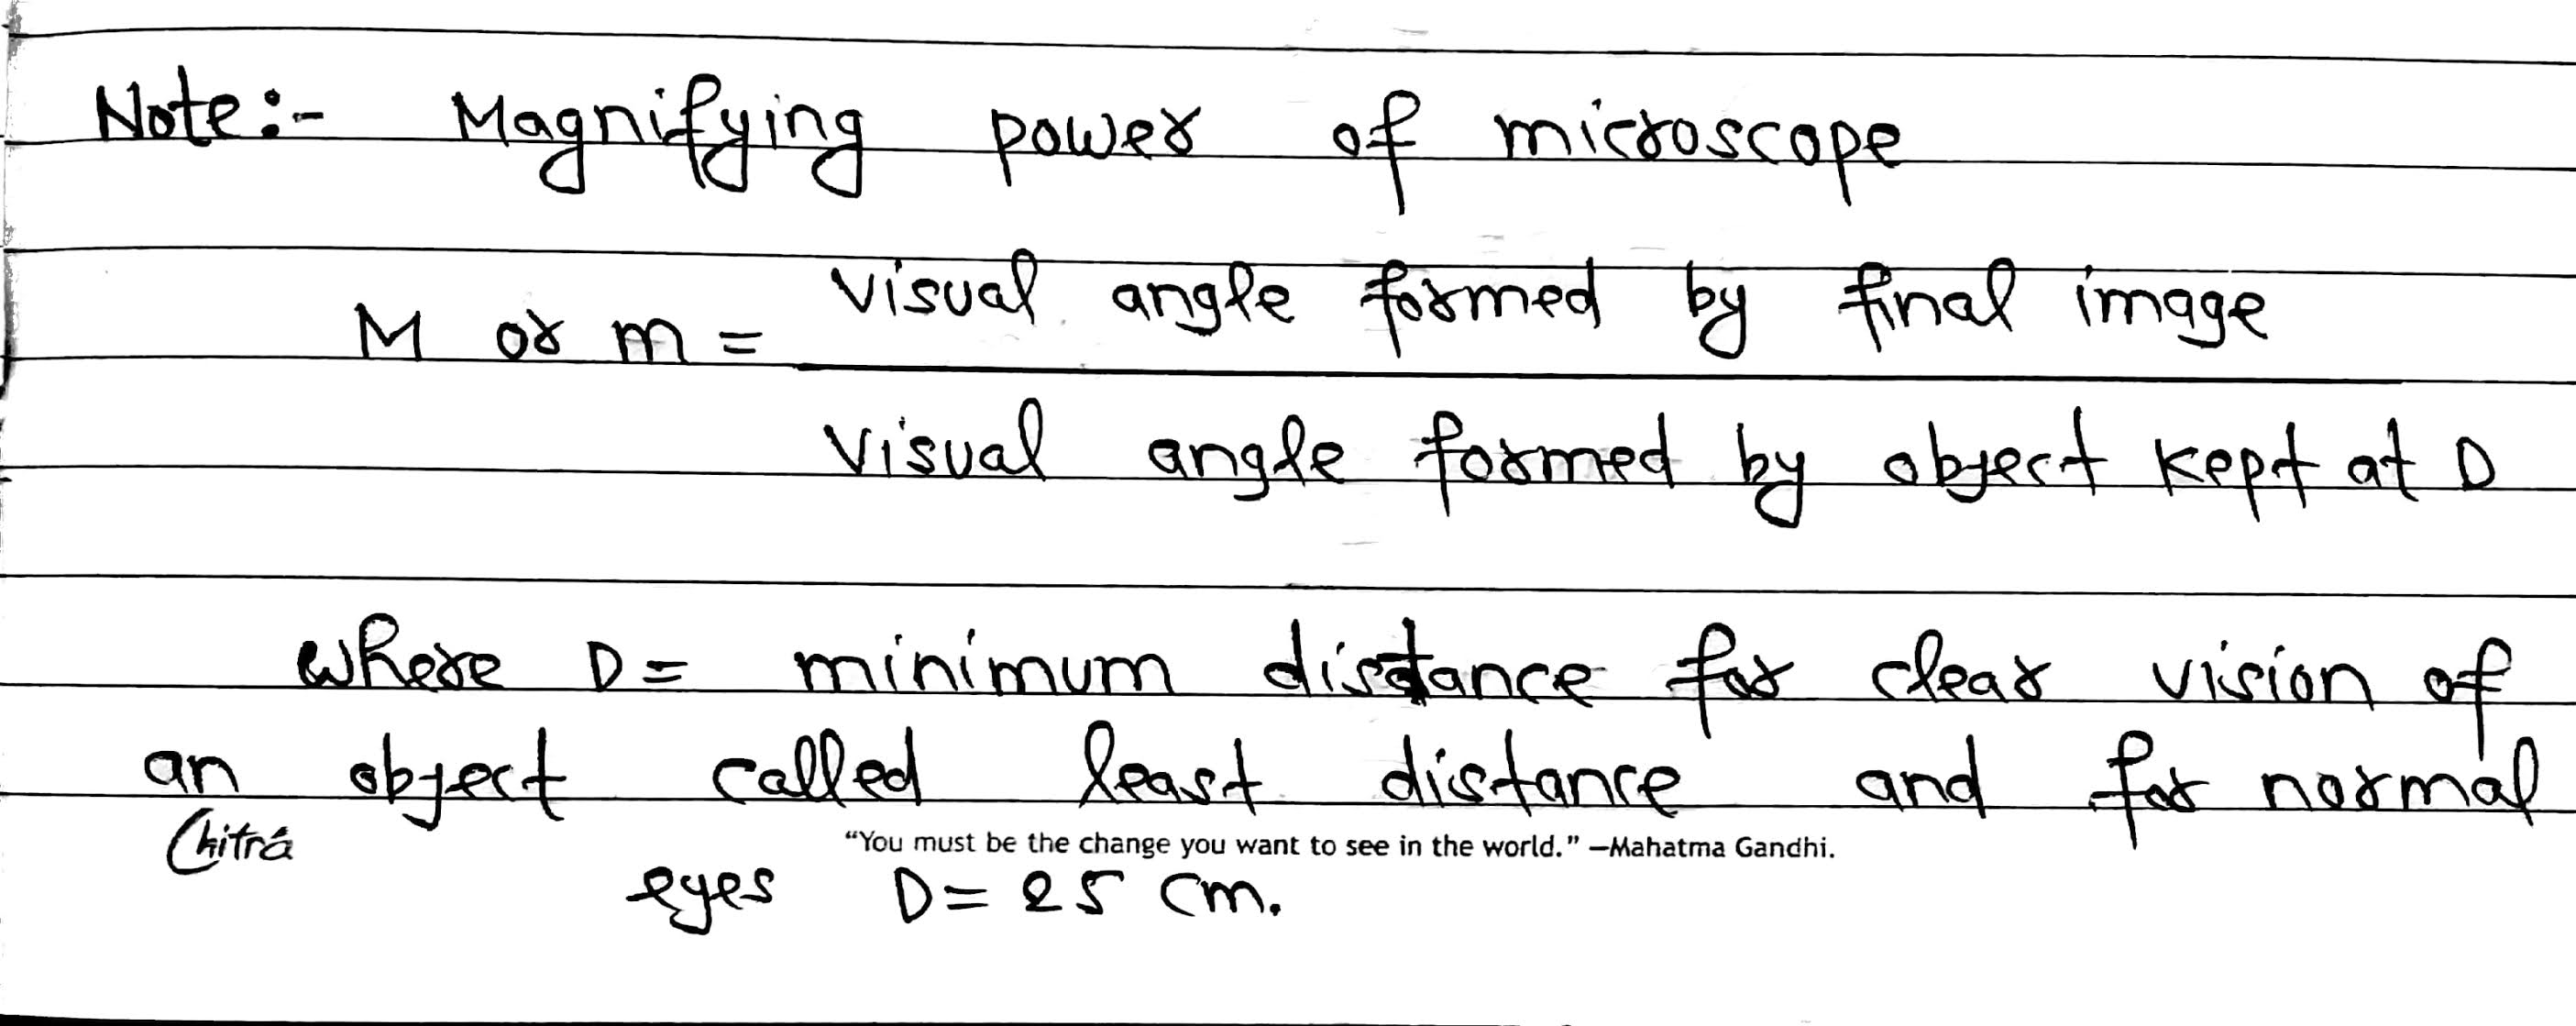 Note:- Magnifying power of microscope
visual angle formed by final image
M or m =
visual angle formed by object kept at D
where D = minimum distance for clear vision of
an object called least distance and for normal
Chitra
"You must be the change you want to see in the world." —Mahatma Gandhi.
eyes D = 25 cm.